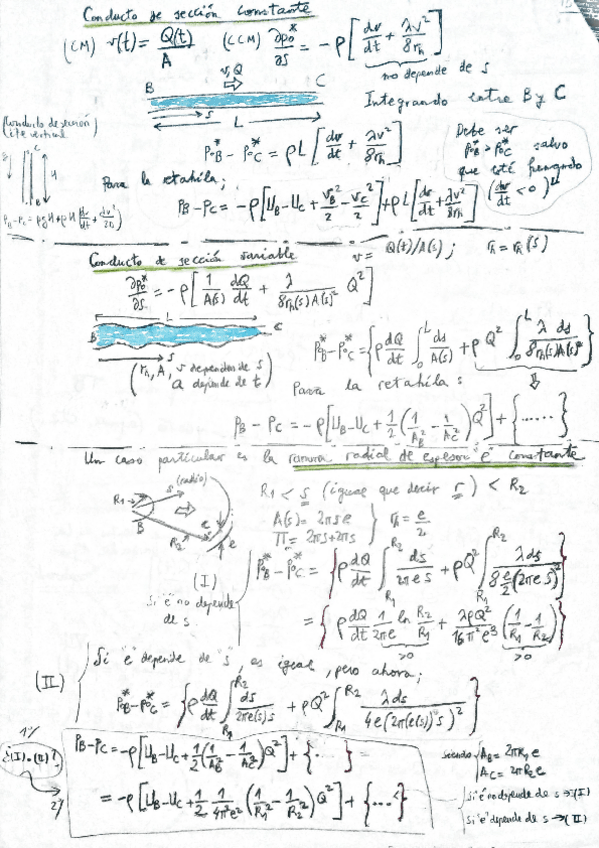 Conducto de sección constante
(CM) v(t) = Q(t)/A (CCM) ∂p₀*/∂s = -ρ[dv/dt + λv²/8rₕ]
no depende de s
v, Q
B C
s
L
Integrando entre B y C
p₀*B - p₀*C = ρL[dv/dt + λv²/8rₕ]
Debe ser
p₀*B > p₀*C salvo
que esté frenando
(dv/dt < 0)
vertical
B C H
Para la retahíla;
pB - pC = -ρ[UB - UC + vB²/2 - vC²/2] + ρL[dv/dt + λv²/8rₕ]
Conducto de sección variable
v = Q(t)/A(s); rₕ = rₕ(s)
∂p₀*/∂s = -ρ[1/A(s) dQ/dt + λ/8rₕ(s)A(s)² Q²]
L
B C
s
(rₕ, A, v dependen de s
Q depende de t)
p₀*B - p₀*C = {ρ dQ/dt ∫₀ᴸ ds/A(s) + ρQ² ∫₀ᴸ λ ds/8rₕ(s)A(s)²}
Para la retahíla s
pB - pC = -ρ[UB - UC + 1/2(1/AB² - 1/AC²)Q²] + {......}
Un caso particular es la ranura radial de espesor "e" constante
s (radio)
R₁
B
R₂
e
e
R₁ < s (igual que decir r) < R₂
A(s) = 2πse
Π = 2πs + 2πs } rₕ = e/2
(I)
Si "e" no depende
de s
p₀*B - p₀*C = {ρ dQ/dt ∫R₁^R₂ ds/2πes + ρQ² ∫R₁^R₂ λds/8 e/2 (2πes)²}
= {ρ dQ/dt 1/2πe ln R₂/R₁ + λρQ²/16π²e³ (1/R₁ - 1/R₂)}
>0 >0
(II)
Si "e" depende de "s", es igual, pero ahora;
p₀*B - p₀*C = {ρ dQ/dt ∫R₁^R₂ ds/2πe(s)s + ρQ² ∫R₁^R₂ λds/4e(2π(e(s))s)²}
¿(I) o (II)?
pB - pC = -ρ[UB - UC + 1/2(1/AB² - 1/AC²)Q²] + {....} =
= -ρ[UB - UC + 1/2 1/4π²e² (1/R₁² - 1/R₂²)Q²] + {....}
siendo { AB = 2πR₁e
AC = 2πR₂e
Si "e" no depende de s → (I)
Si "e" depende de s → (II)